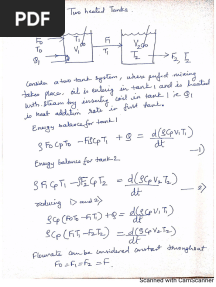 PDF
Two heated Tanks.
F0
T0
Q1
T1
V1
F1
T1
V2
T2
F2, T2
Consider a two tank system, where perfect mixing
takes place. oil is entering in tank 1 and is heated
with steam by inserting coil in tank 1 i.e Q1
is heat addition rate in first tank.
Energy balance for tank 1
ρ F0 Cp T0 - F1 Cp T1 + Q = d(ρ Cp V1 T1) / dt —1)
Energy balance for tank 2.
ρ F1 Cp T1 - ρ F2 Cp T2 = d(ρ Cp V2 T2) / dt —2)
reducing 1 and 2)
ρ Cp (F0 T0 - F1 T1) + Q = d(ρ Cp V1 T1) / dt
ρ Cp (F1 T1 - F2 T2) = d(ρ Cp V2 T2) / dt
Flowrate can be considered constant throughout
F0 = F1 = F2 = F.
Scanned with CamScanner